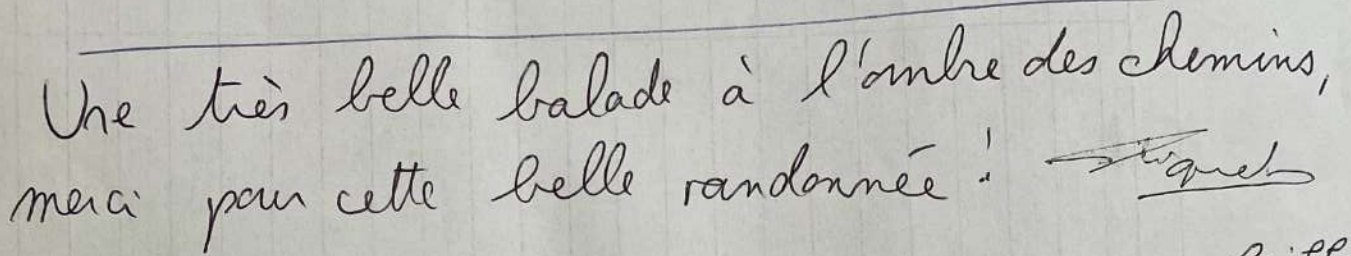 Une très belle balade à l'ombre des chemins,
merci pour cette belle randonnée !